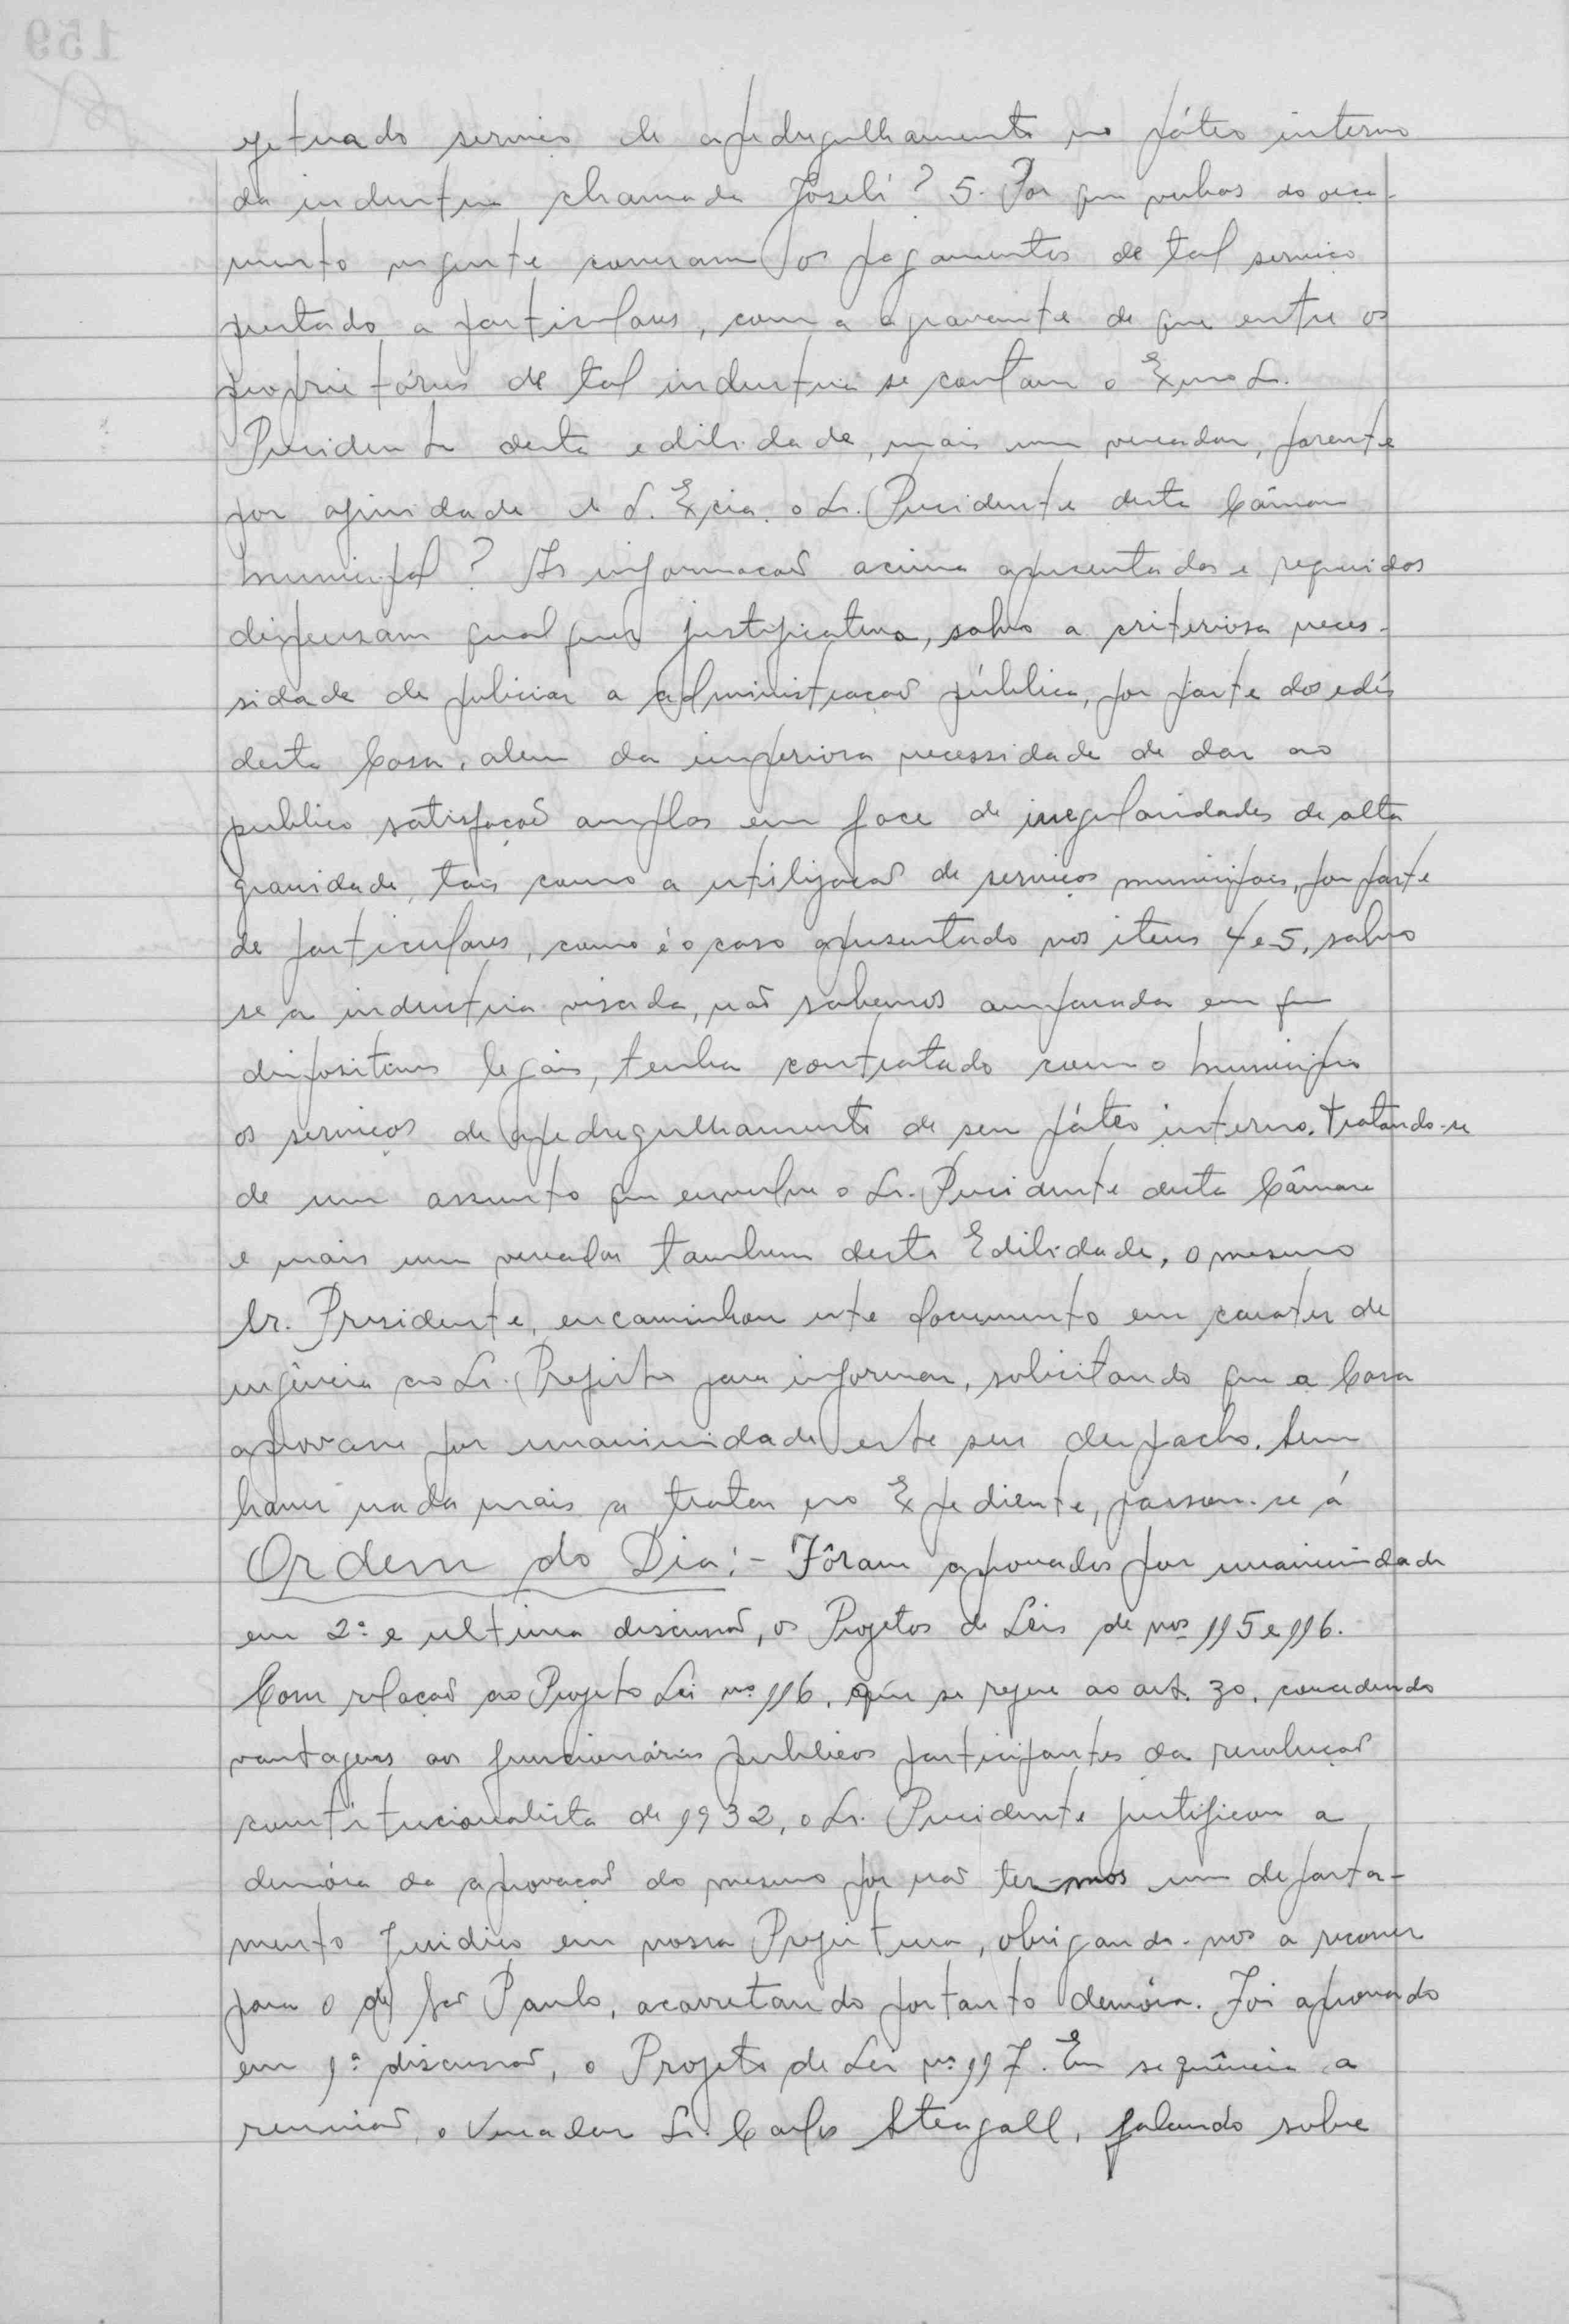 efetuado serviço de apedregulhamento no páteo interno
da industria chamada Joseli? 5. Por que verbas do orça-
mento vigente correram os pagamentos de tal serviço
prestado a particulares, com a agravante de que entre os
proprietários de tal industria se contam o Exmo Sr.
Presidente desta edilidade, mais um vereador, parente
por afinidade de S. Excia. o Sr. Presidente desta Câmara
Municipal? As informações acima apresentadas e requeridas
dispensam qualquer justificativa, salvo a criteriosa neces-
sidade de policiar a administração pública, por parte dos edís
desta Casa, alem da imperiosa necessidade de dar ao
publico satisfação amplas em face de irregularidades de alta
gravidade, tais como a utilização de serviços municipais, por parte
de particulares, como é o caso apresentado nos itens 4 e 5, salvo
se a industria visada, não sabemos amparada em que
dispositivos legais, tenha contratado com o Municipio
os serviços de apedregulhamento de seu páteo interno. Tratando-se
de um assunto que envolve o Sr. Presidente desta Câmara
e mais um vereador tambem desta Edilidade, o mesmo
Sr. Presidente, encaminhou este documento em carater de
urgência ao Sr. Prefeito para informar, solicitando que a Casa
aprovasse por unanimidade este seu despacho. Sem
haver nada mais a tratar no Expediente, passou-se á
Ordem do Dia:- Fôram aprovados por unanimidade
em 2ª e ultima discussão, os Projetos de Leis de nos 115 e 116.
Com relação ao Projeto Lei nº 116, que se refere ao art. 30, concedendo
vantagens aos funcionários publicos participantes da revolução
constitucionalista de 1932, o Sr. Presidente justificou a
demóra da aprovação do mesmo por não ter-mos um departa-
mento Juridico em nossa Prefeitura, obrigando-nos a recorrer
para o de São Paulo, acarretando portanto demóra. Foi aprovado
em 1ª discussão, o Projeto de Lei nº 117. Em sequência a
reunião, o Vereador Sr. Carlos Steagall, falando sobre